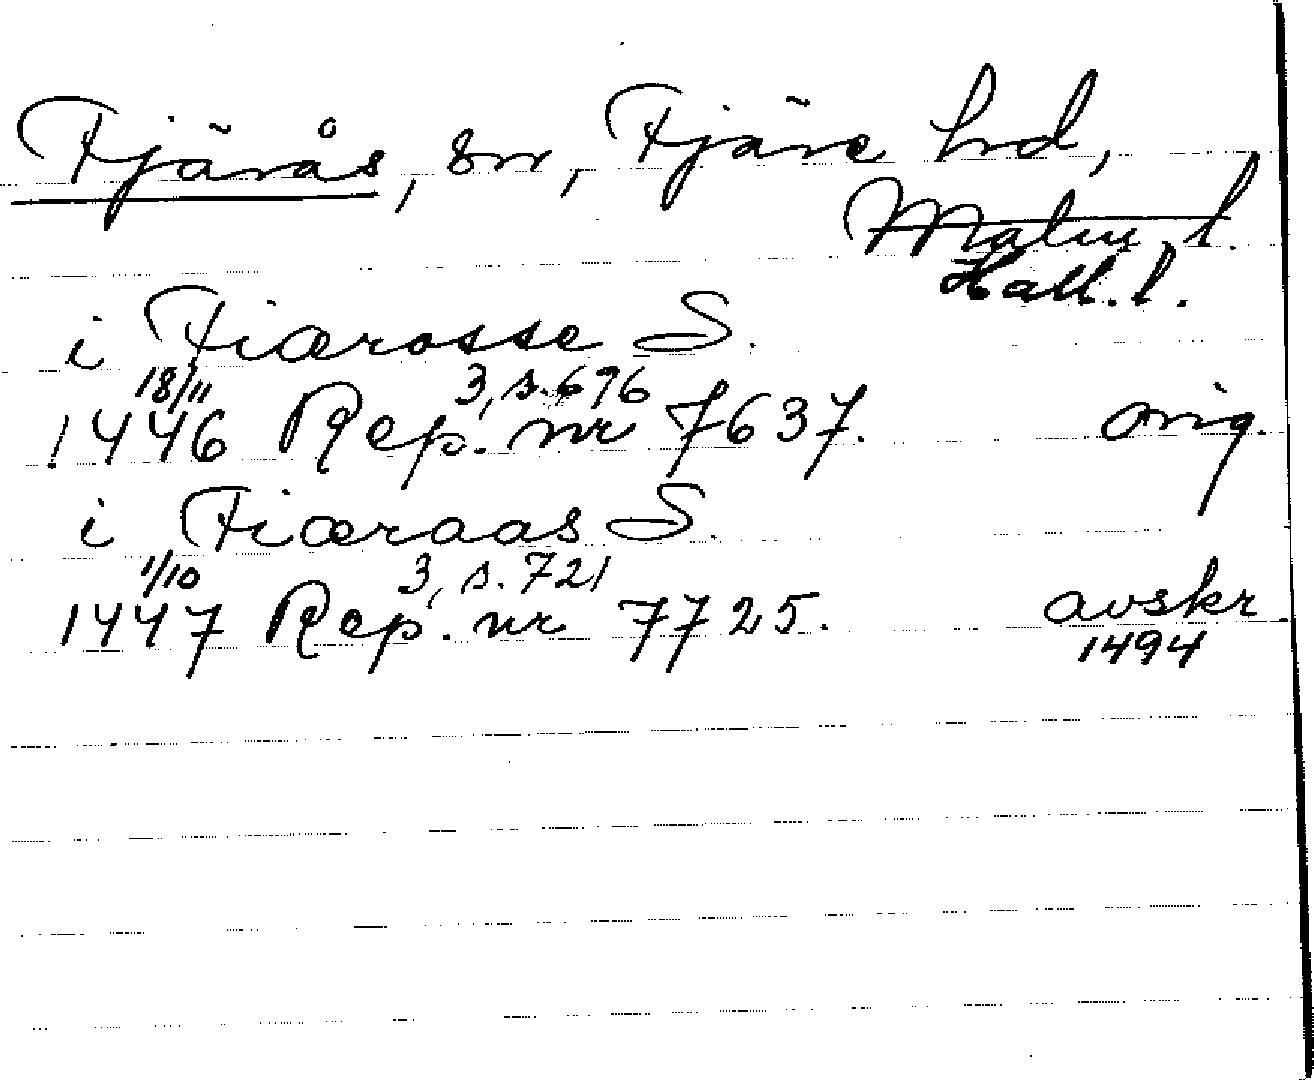 Fjärås, sn, Fjäre hd,
Malm. l.
Hall. l.
i Fiærosse S.
18/11 3, s. 696
1446 Rep. nr 7637. orig.
i Fiæraas S.
1/10 3, s. 721
1447 Rep. nr 7725. avskr
1494